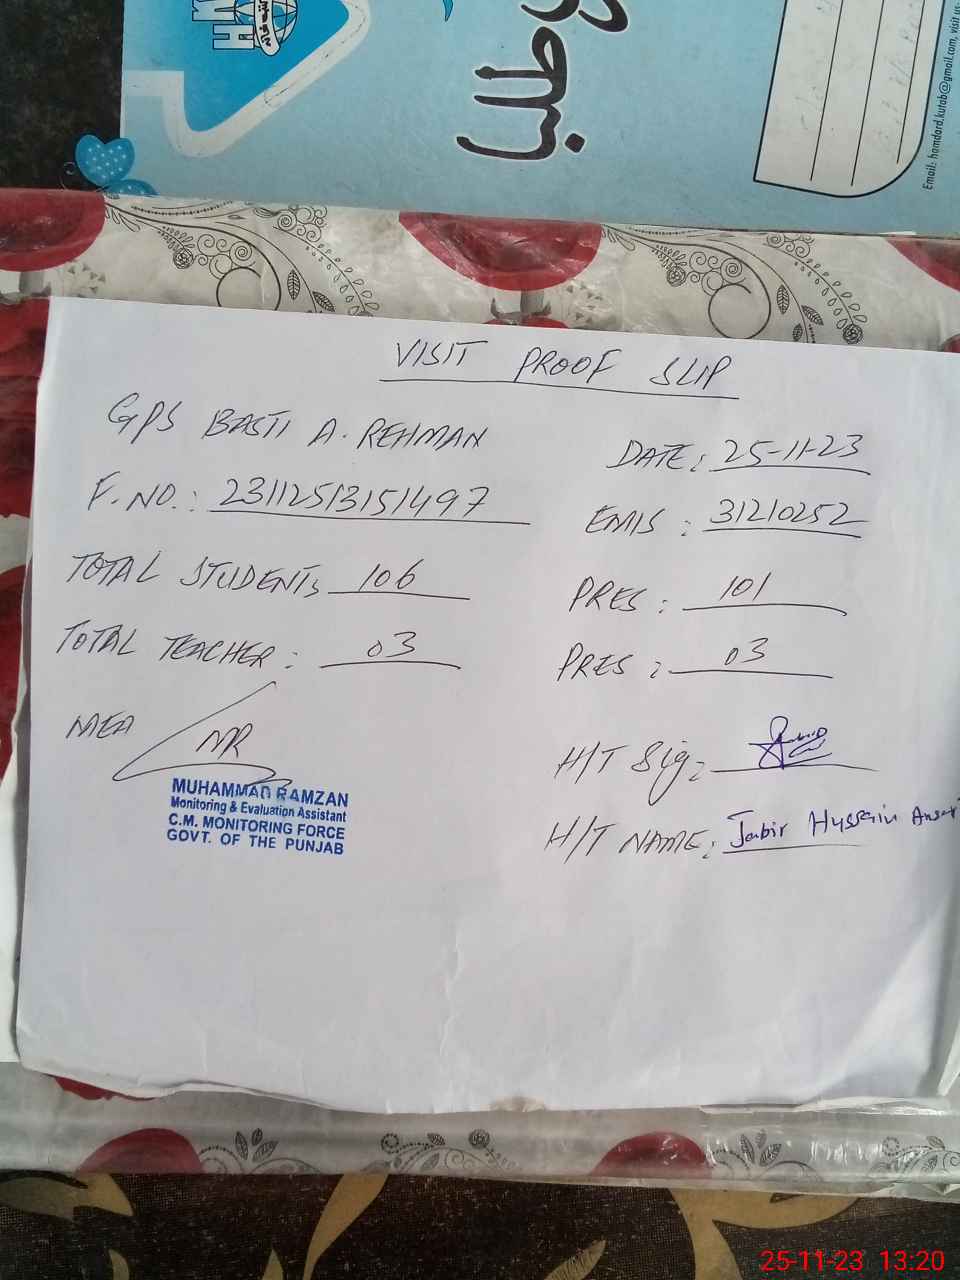 HK
طلبا
Email: hamdard.kutab@gmail.com, visit us:
VISIT PROOF SLIP
GPS BASTI A. REHMAN
DATE: 25-11-23
F. NO.: 23112513151497
EMIS : 31210252
TOTAL STUDENTS 106
PRES : 101
TOTAL TEACHER : 03
PRES : 03
MEA
MR
H/T Sig:
MUHAMMAD RAMZAN
Monitoring & Evaluation Assistant
C.M. MONITORING FORCE
GOVT. OF THE PUNJAB
H/T NAME: Jabir Hussain Ansari
25-11-23 13:20